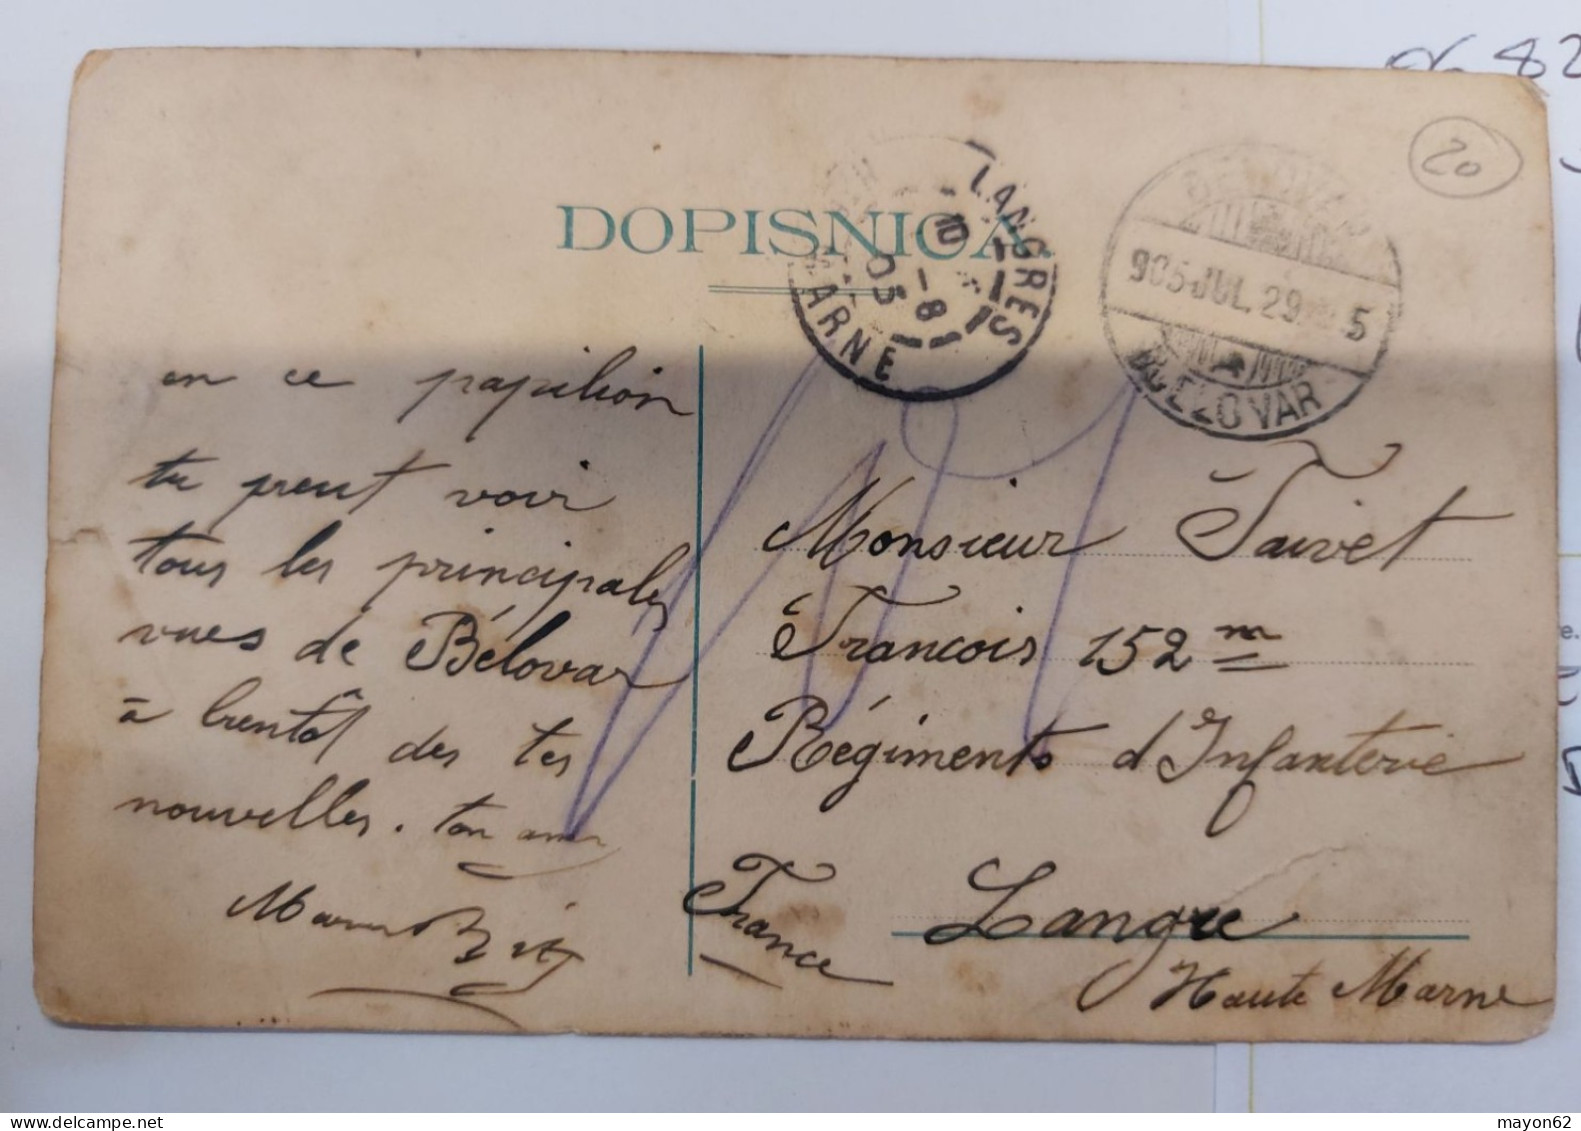 DOPISNICA
LANGRES
10
1-8
05
MARNE
BELOVAR
905 JUL. 29
5
BJELOVAR
20
82
en ce papilion
tu preut voir
tous les principales
vues de Bélovar
à bientôt des tes
nouvelles. ton ami
Monsieur Taivet
Francois 152 m
Régiments d'Infanterie
France
Langre
Haute Marne
mayon62